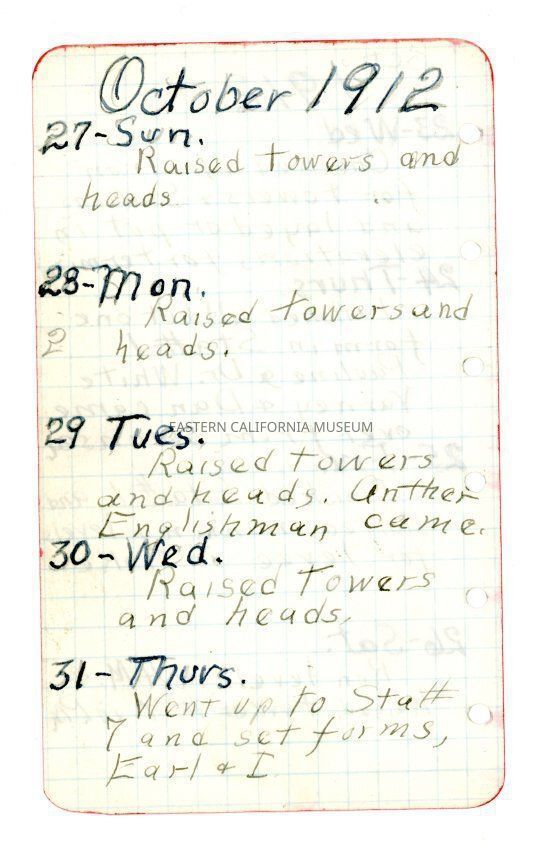 October 1912
27-Sun.
Raised towers and
heads.
28-Mon.
Raised towers and
2 heads.
29 Tues.
EASTERN CALIFORNIA MUSEUM
Raised towers
and heads. Unther
Englishman came.
30-Wed.
Raised Towers
and heads.
31-Thurs.
Went up to Staff
7 and set forms,
Earl & I